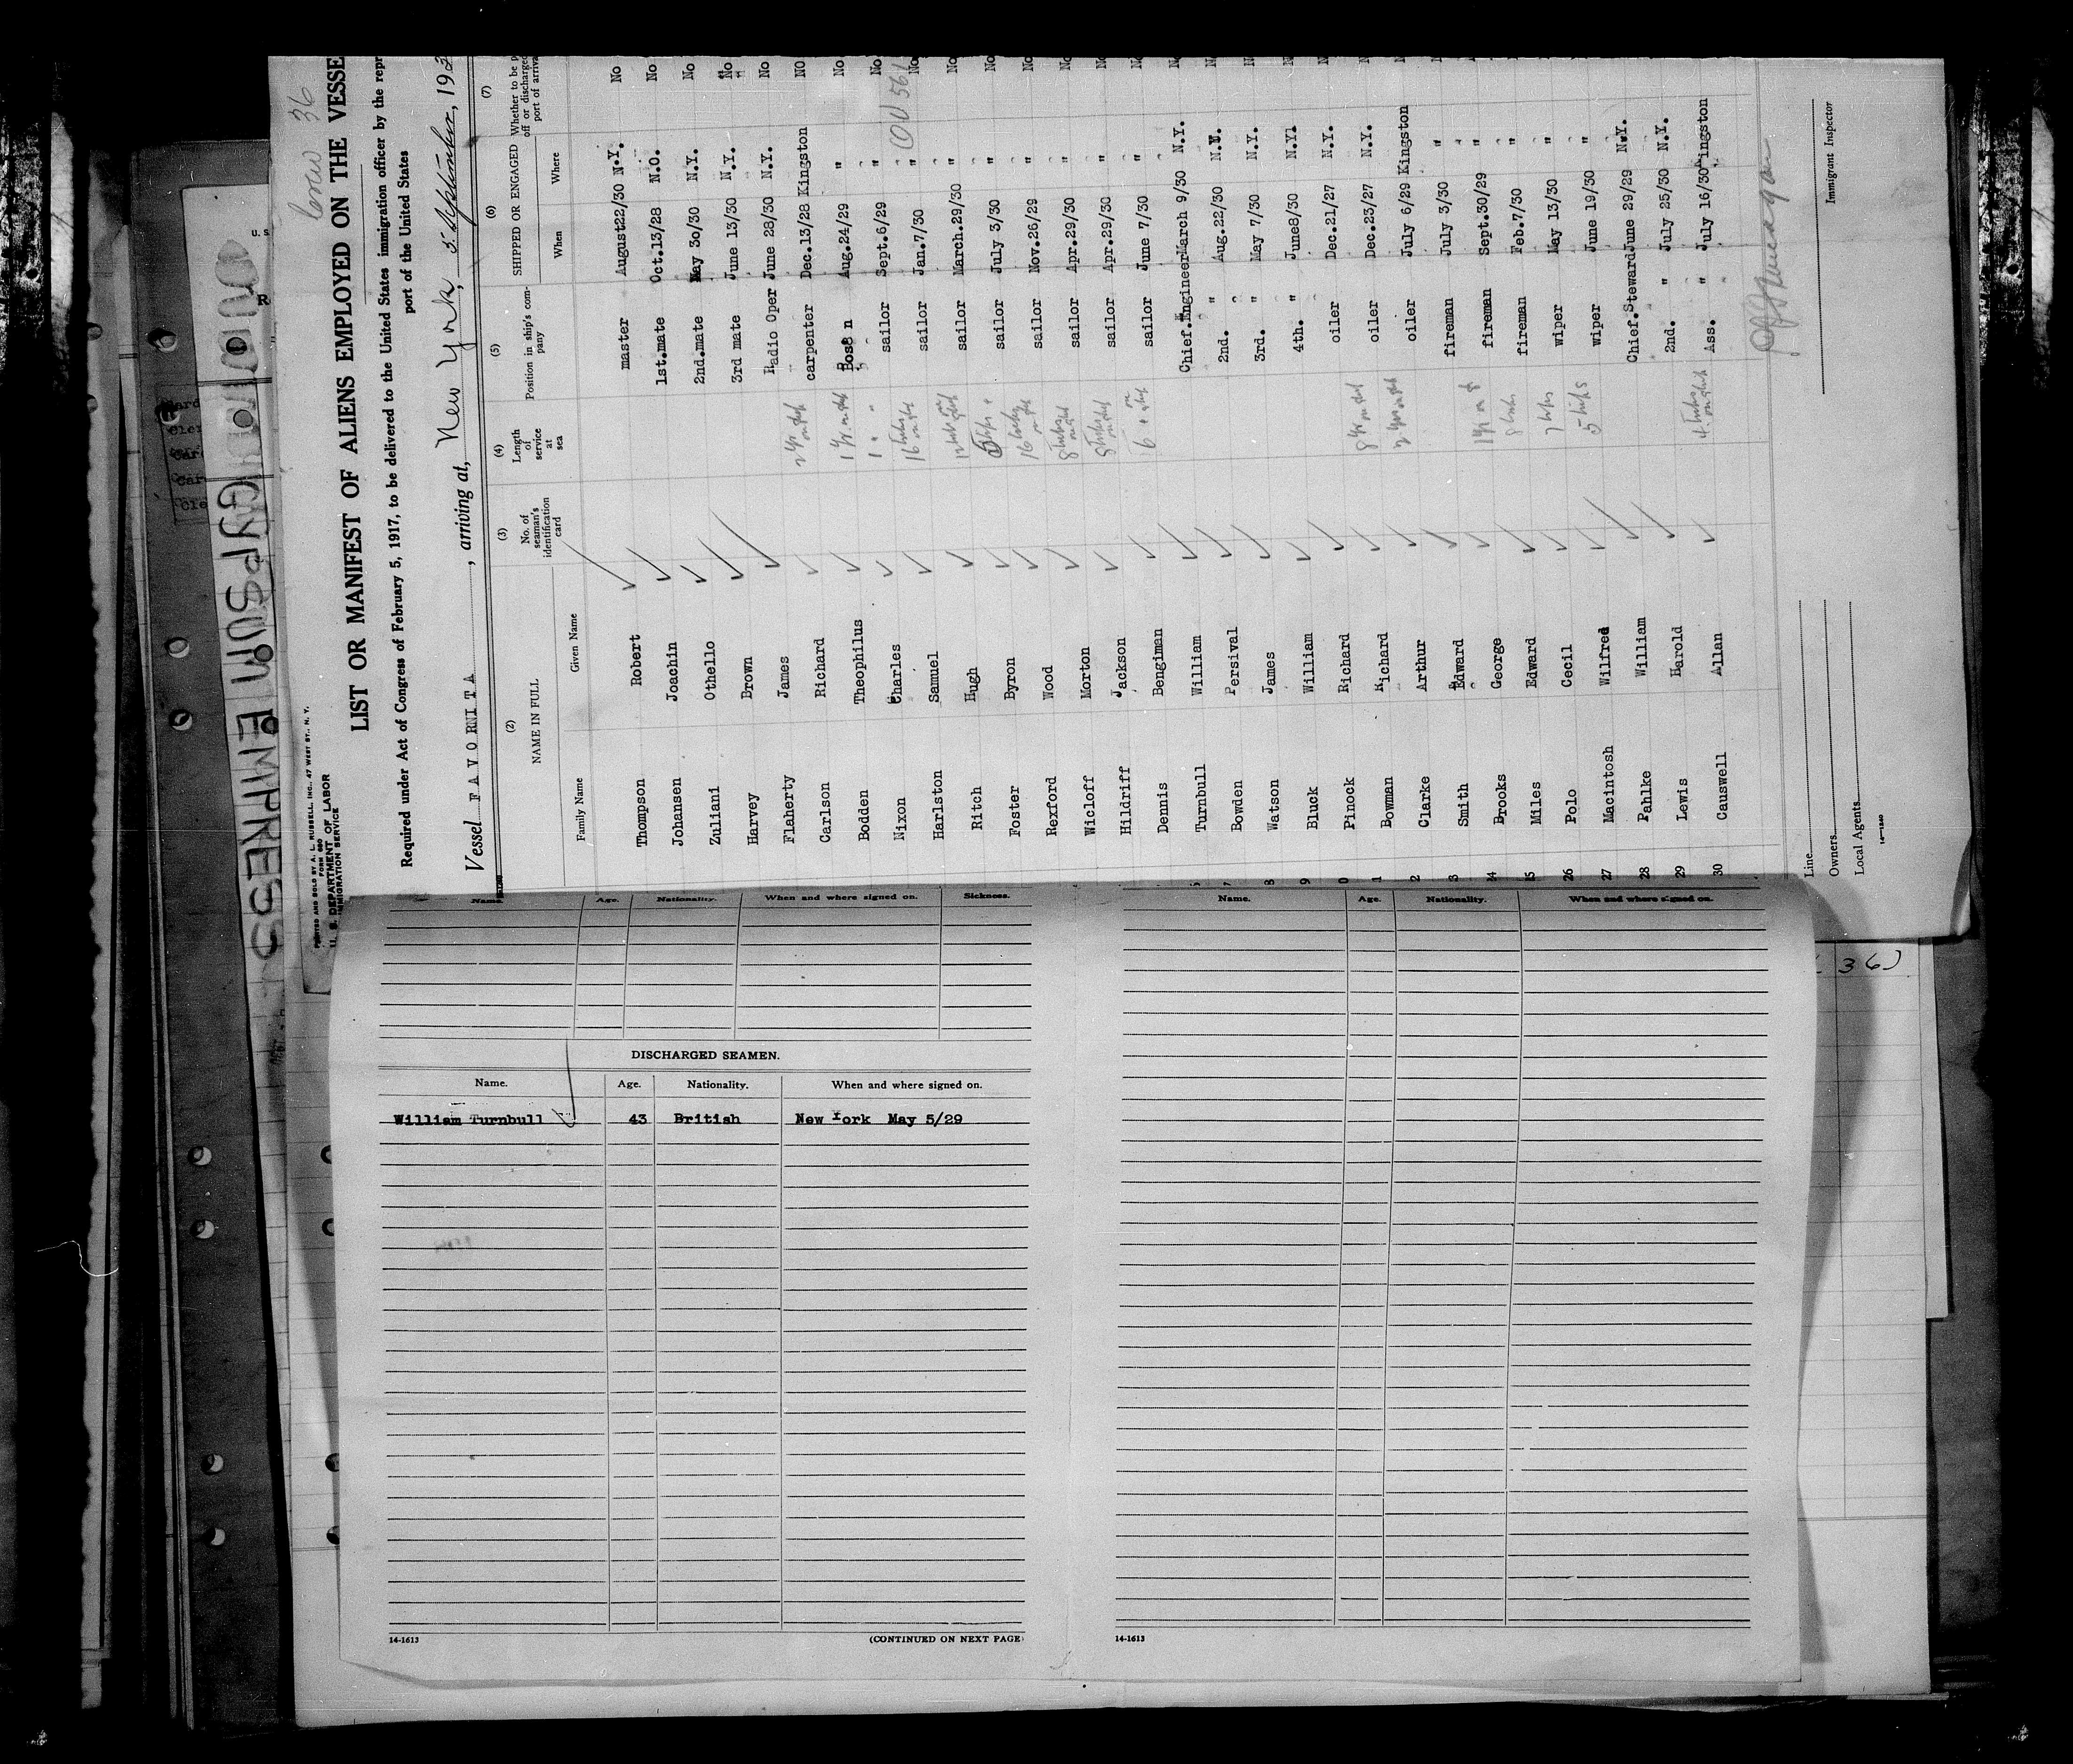 Crew 36
PRINTED AND SOLD BY A. L. RUSSELL, INC., 47 WEST ST., N. Y.
FORM 680
U. S. DEPARTMENT OF LABOR
IMMIGRATION SERVICE
LIST OR MANIFEST OF ALIENS EMPLOYED ON THE VESSE
Required under Act of Congress of February 5, 1917, to be delivered to the United States immigration officer by the repr
port of the United States
Vessel FAVORNITA, arriving at, New York, 5. September, 193
(2) (3) (4) (5) (6) (7)
NAME IN FULL
No. of seaman's identification card
Length of service at sea
Position in ship's company
SHIPPED OR ENGAGED
Whether to be p
off or discharged
port of arriva
Family Name Given Name When Where
Thompson Robert master August22/30 N.Y. No
Johansen Joachin 1st.mate Oct.13/28 N.O. No
Zuliani Othello 2nd.mate May 30/30 N.Y. No
Harvey Brown 3rd mate June 13/30 N.Y. No
Flaherty James Radio Oper June 28/30 N.Y. No
Carlson Richard carpenter Dec.13/28 Kingston NO
Bodden Theophilus Aug.24/29 " No
Nixon Charles 1 " " sailor Sept.6/29 " No
Harlston Samuel sailor Jan.7/30 No
Ritch Hugh sailor March.29/30 " No
Foster Byron sailor July 3/30 " No
Rexford Wood sailor Nov.26/29 " No
Wicloff Morton sailor Apr.29/30 " No
Hildriff Jackson sailor Apr.29/30 " No
Dennis Bengiman sailor June 7/30 " N
Turnbull William Chief.Engineer March 9/30 N.Y. N
Bowden Persival 2nd. " Aug.22/30 N
Watson James 3rd. " May 7/30 N.Y. N
Bluck William 4th. " June8/30 N.Y. N
Pinock Richard oiler Dec.21/27 N.Y. N
Bowman Richard oiler Dec.23/27 N.Y. N
Clarke Arthur oiler July 6/29 Kingston N
Smith Edward fireman July 3/30 "
24 Brooks George fireman Sept.30/29 "
25 Miles Edward fireman Feb.7/30 "
26 Polo Cecil 7 trips wiper May 13/30 "
27 Macintosh Wilfred 5 trips wiper June 19/30 "
28 Pahlke William Chief.Steward June 29/29 N.Y.
29 Lewis Harold 2nd. " July 25/30 N.Y.
30 Causwell Allan Ass. " July 16/30 Kingston
Line
Owners
Local Agents
Immigrant Inspector
GYPSUM EMPRESS
Name. Age. Nationality. When and where signed on. Sickness.
DISCHARGED SEAMEN.
Name. Age. Nationality. When and where signed on.
William Turnbull 43 British New York May 5/29
14-1613 (CONTINUED ON NEXT PAGE)
Name. Age. Nationality. When and where signed on.
14-1613